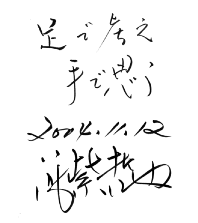 足で考え
手で思う
2004.11.12